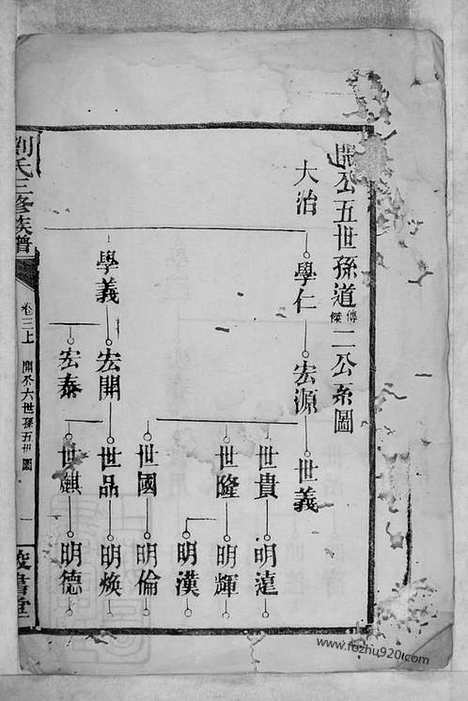 開公五世孫道傳傑二公系圖
大治
學仁
宏源
世義
世貴
明達
世隆
明輝
明漢
世國
明倫
學義
宏開
世品
明煥
宏泰
世麒
明德
劉氏三修族譜
卷三上
開公六世孫五世圖
一
書堂
www.fozhu920.com